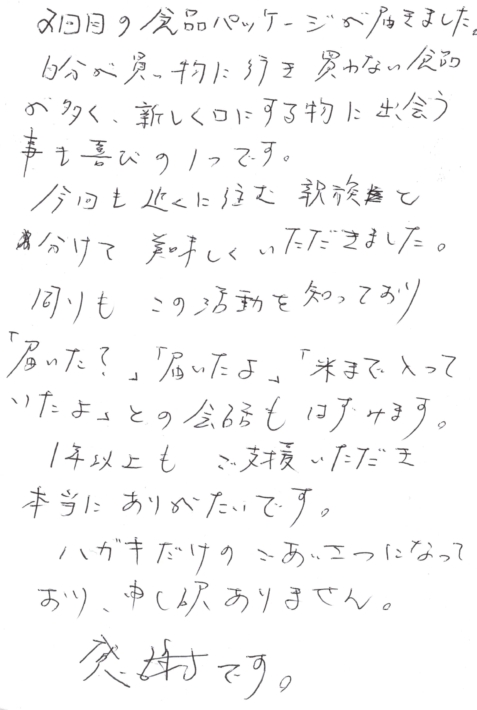 2回目の食品パッケージが届きました。
自分が買い物に行き買わない食品
が多く、新しく口にする物に出会う
事も喜びの1つです。
今回も近くに住む親族と
分けて美味しくいただきました。
周りもこの活動を知っており
「届いた？」「届いたよ」「米まで入って
いたよ」との会話もはずみます。
1年以上もご支援いただき
本当にありがたいです。
ハガキだけのごあいさつになって
おり、申し訳ありません。
感謝です。